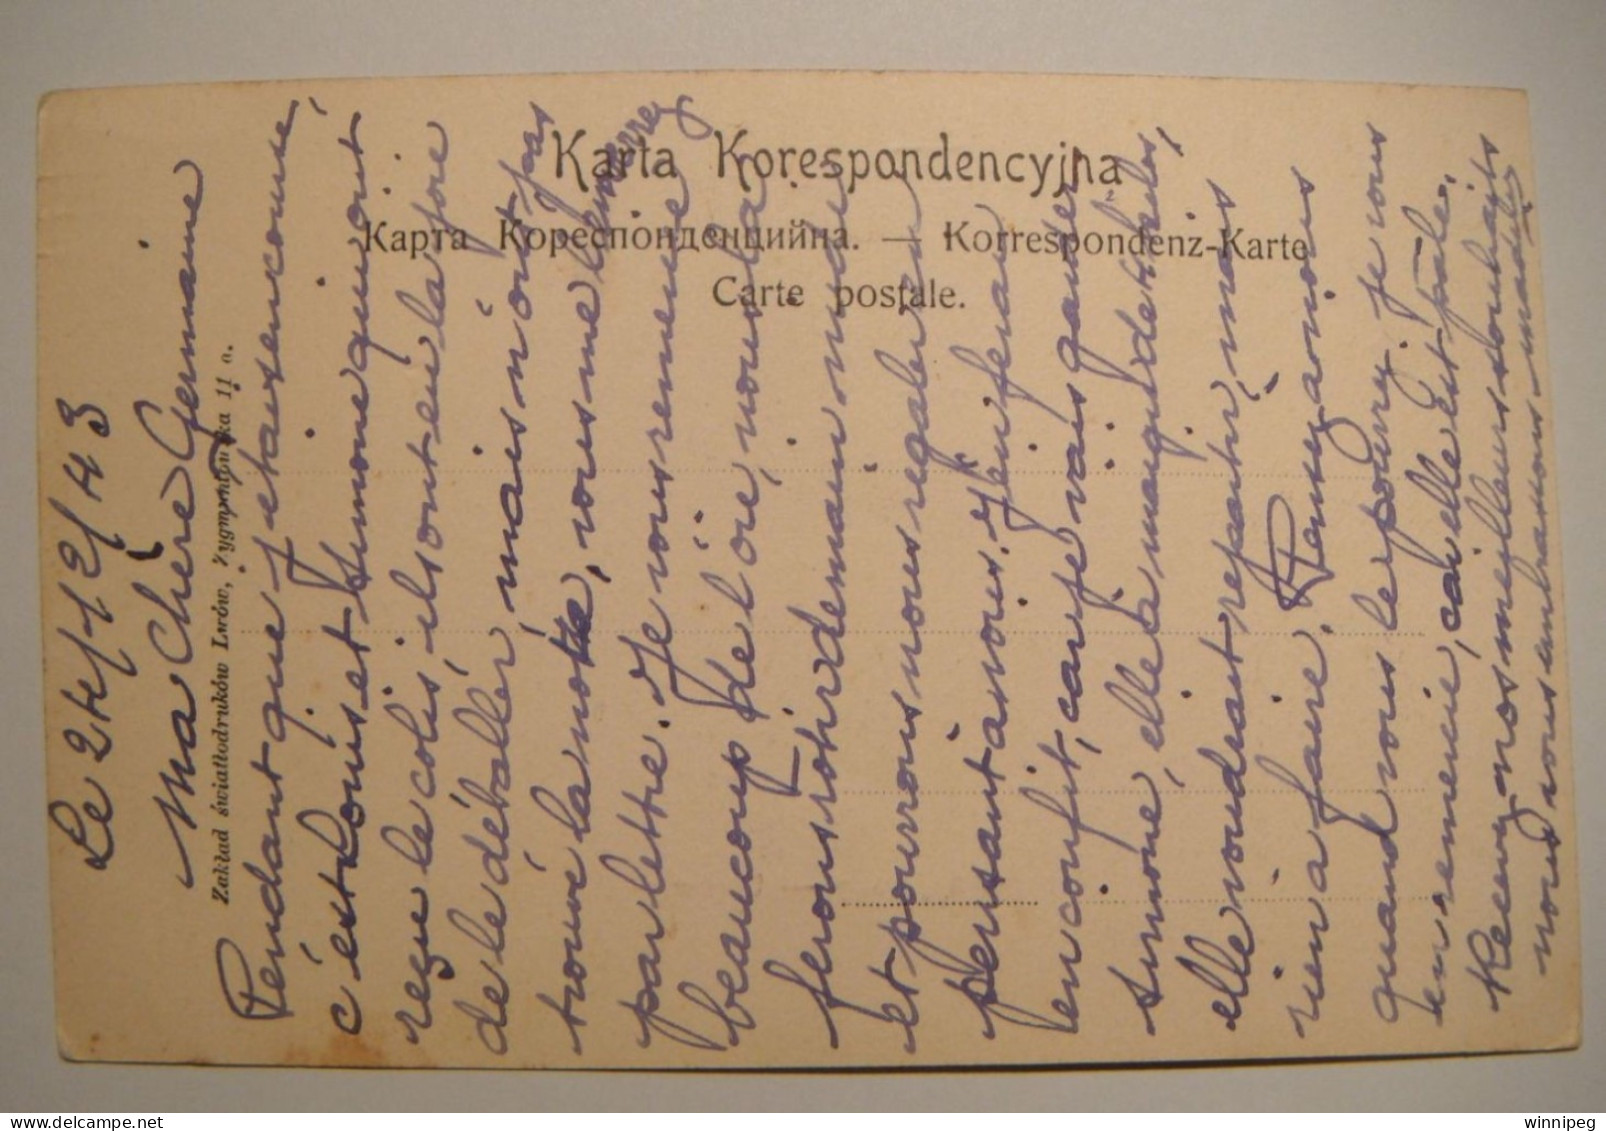 Karta Korespondencyjna
Карта Кореспонденцийна. — Korrespondenz-Karte
Carte postale.
Zakład światłodruków Lwów, Zygmuntowska 11 a.
Le 24/12/43
Ma Chère Germaine
Pendant que j'étais en course,
c'est Louis et Simone qui ont
reçu le colis, ils ont eu la joie
de le déballer, mais n'ont pas
trouvé la note, vous me l'enverrez
par lettre. Je vous remercie
beaucoup de l'oie, nous la
ferons rôtir demain
et pourrons nous régaler en
pensant à vous. J'en ferai
en confit, car je vais garder
Simone, elle a maigri de 4 kilos,
elle voudrait repartir, mais
rien à faire. Remerçions
quand vous le pourrez. Je vous
en remercie, car elle est pâle.
Recevez nos meilleurs souhaits
nous vous embrassons
winnipeg